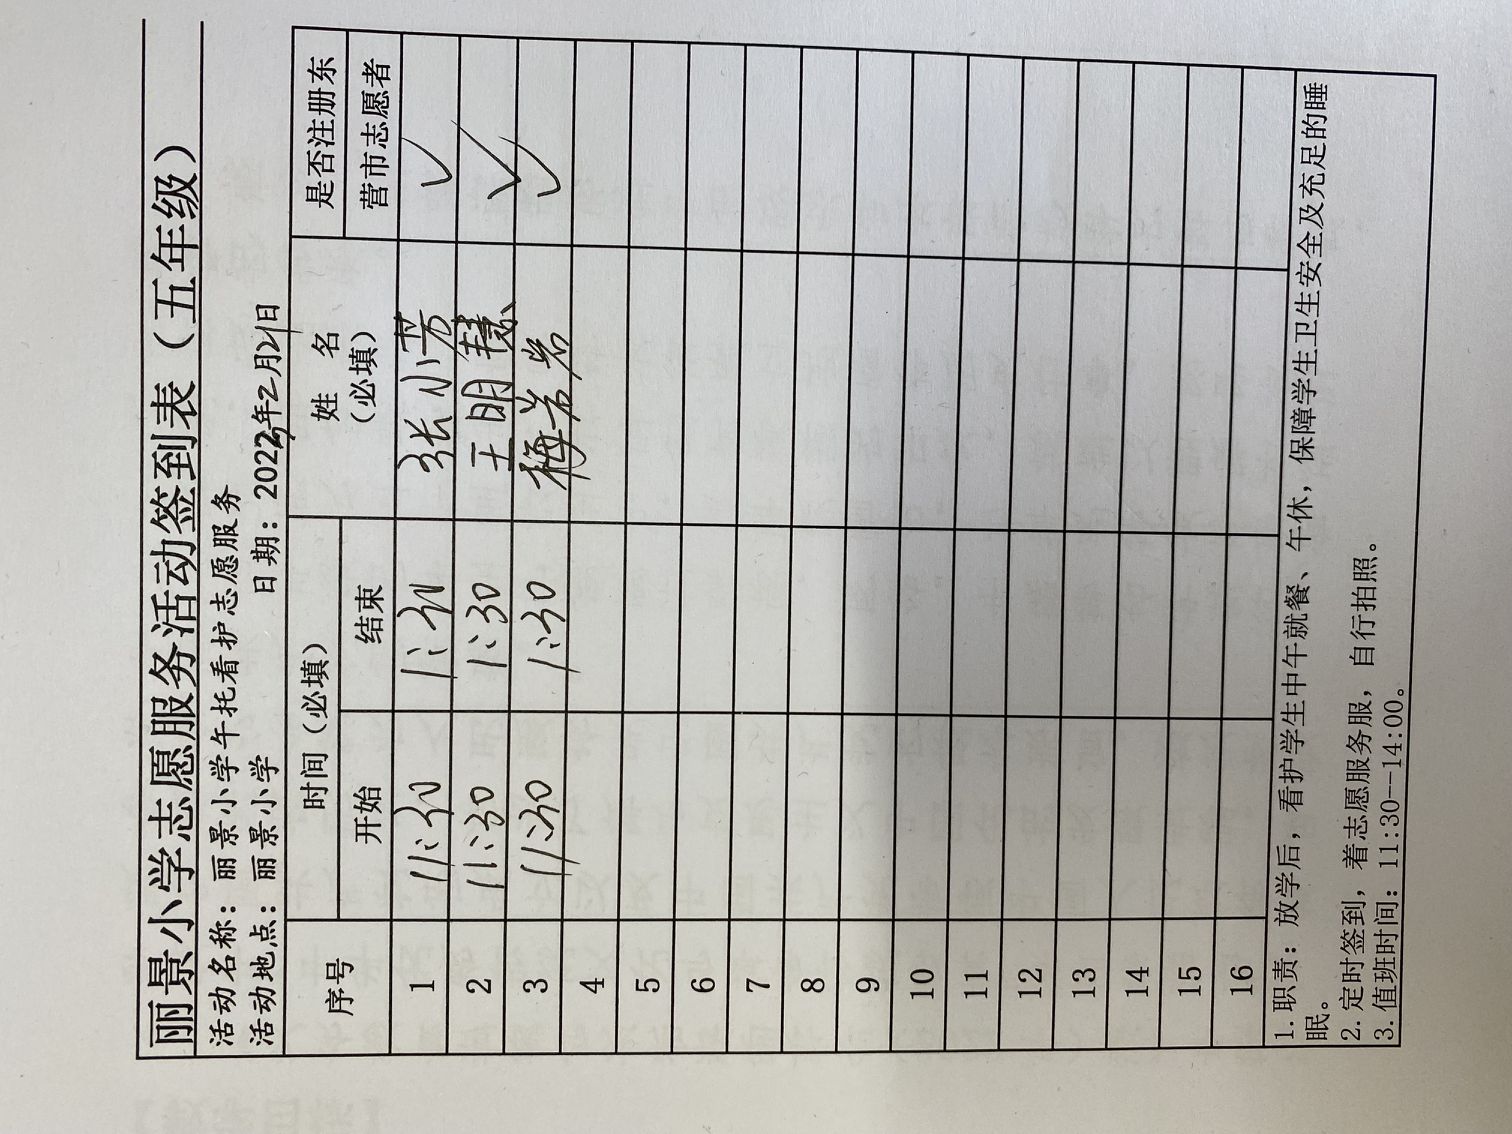 丽景小学志愿服务活动签到表（五年级）
活动名称：丽景小学午托看护志愿服务
活动地点：丽景小学 日期：2022年2月21日
序号 时间（必填） 姓 名（必填） 是否注册东营市志愿者
开始 结束
1 11:30 1:30 张小芳 ✓
2 11:30 1:30 王明 ✓
3 11:30 1:30 梅岩岩 ✓
4
5
6
7
8
9
10
11
12
13
14
15
16
1. 职责：放学后，看护学生中午就餐、午休，保障学生卫生安全及充足的睡
眠。
2. 定时签到，着志愿服务服，自行拍照。
3. 值班时间：11:30--14:00。